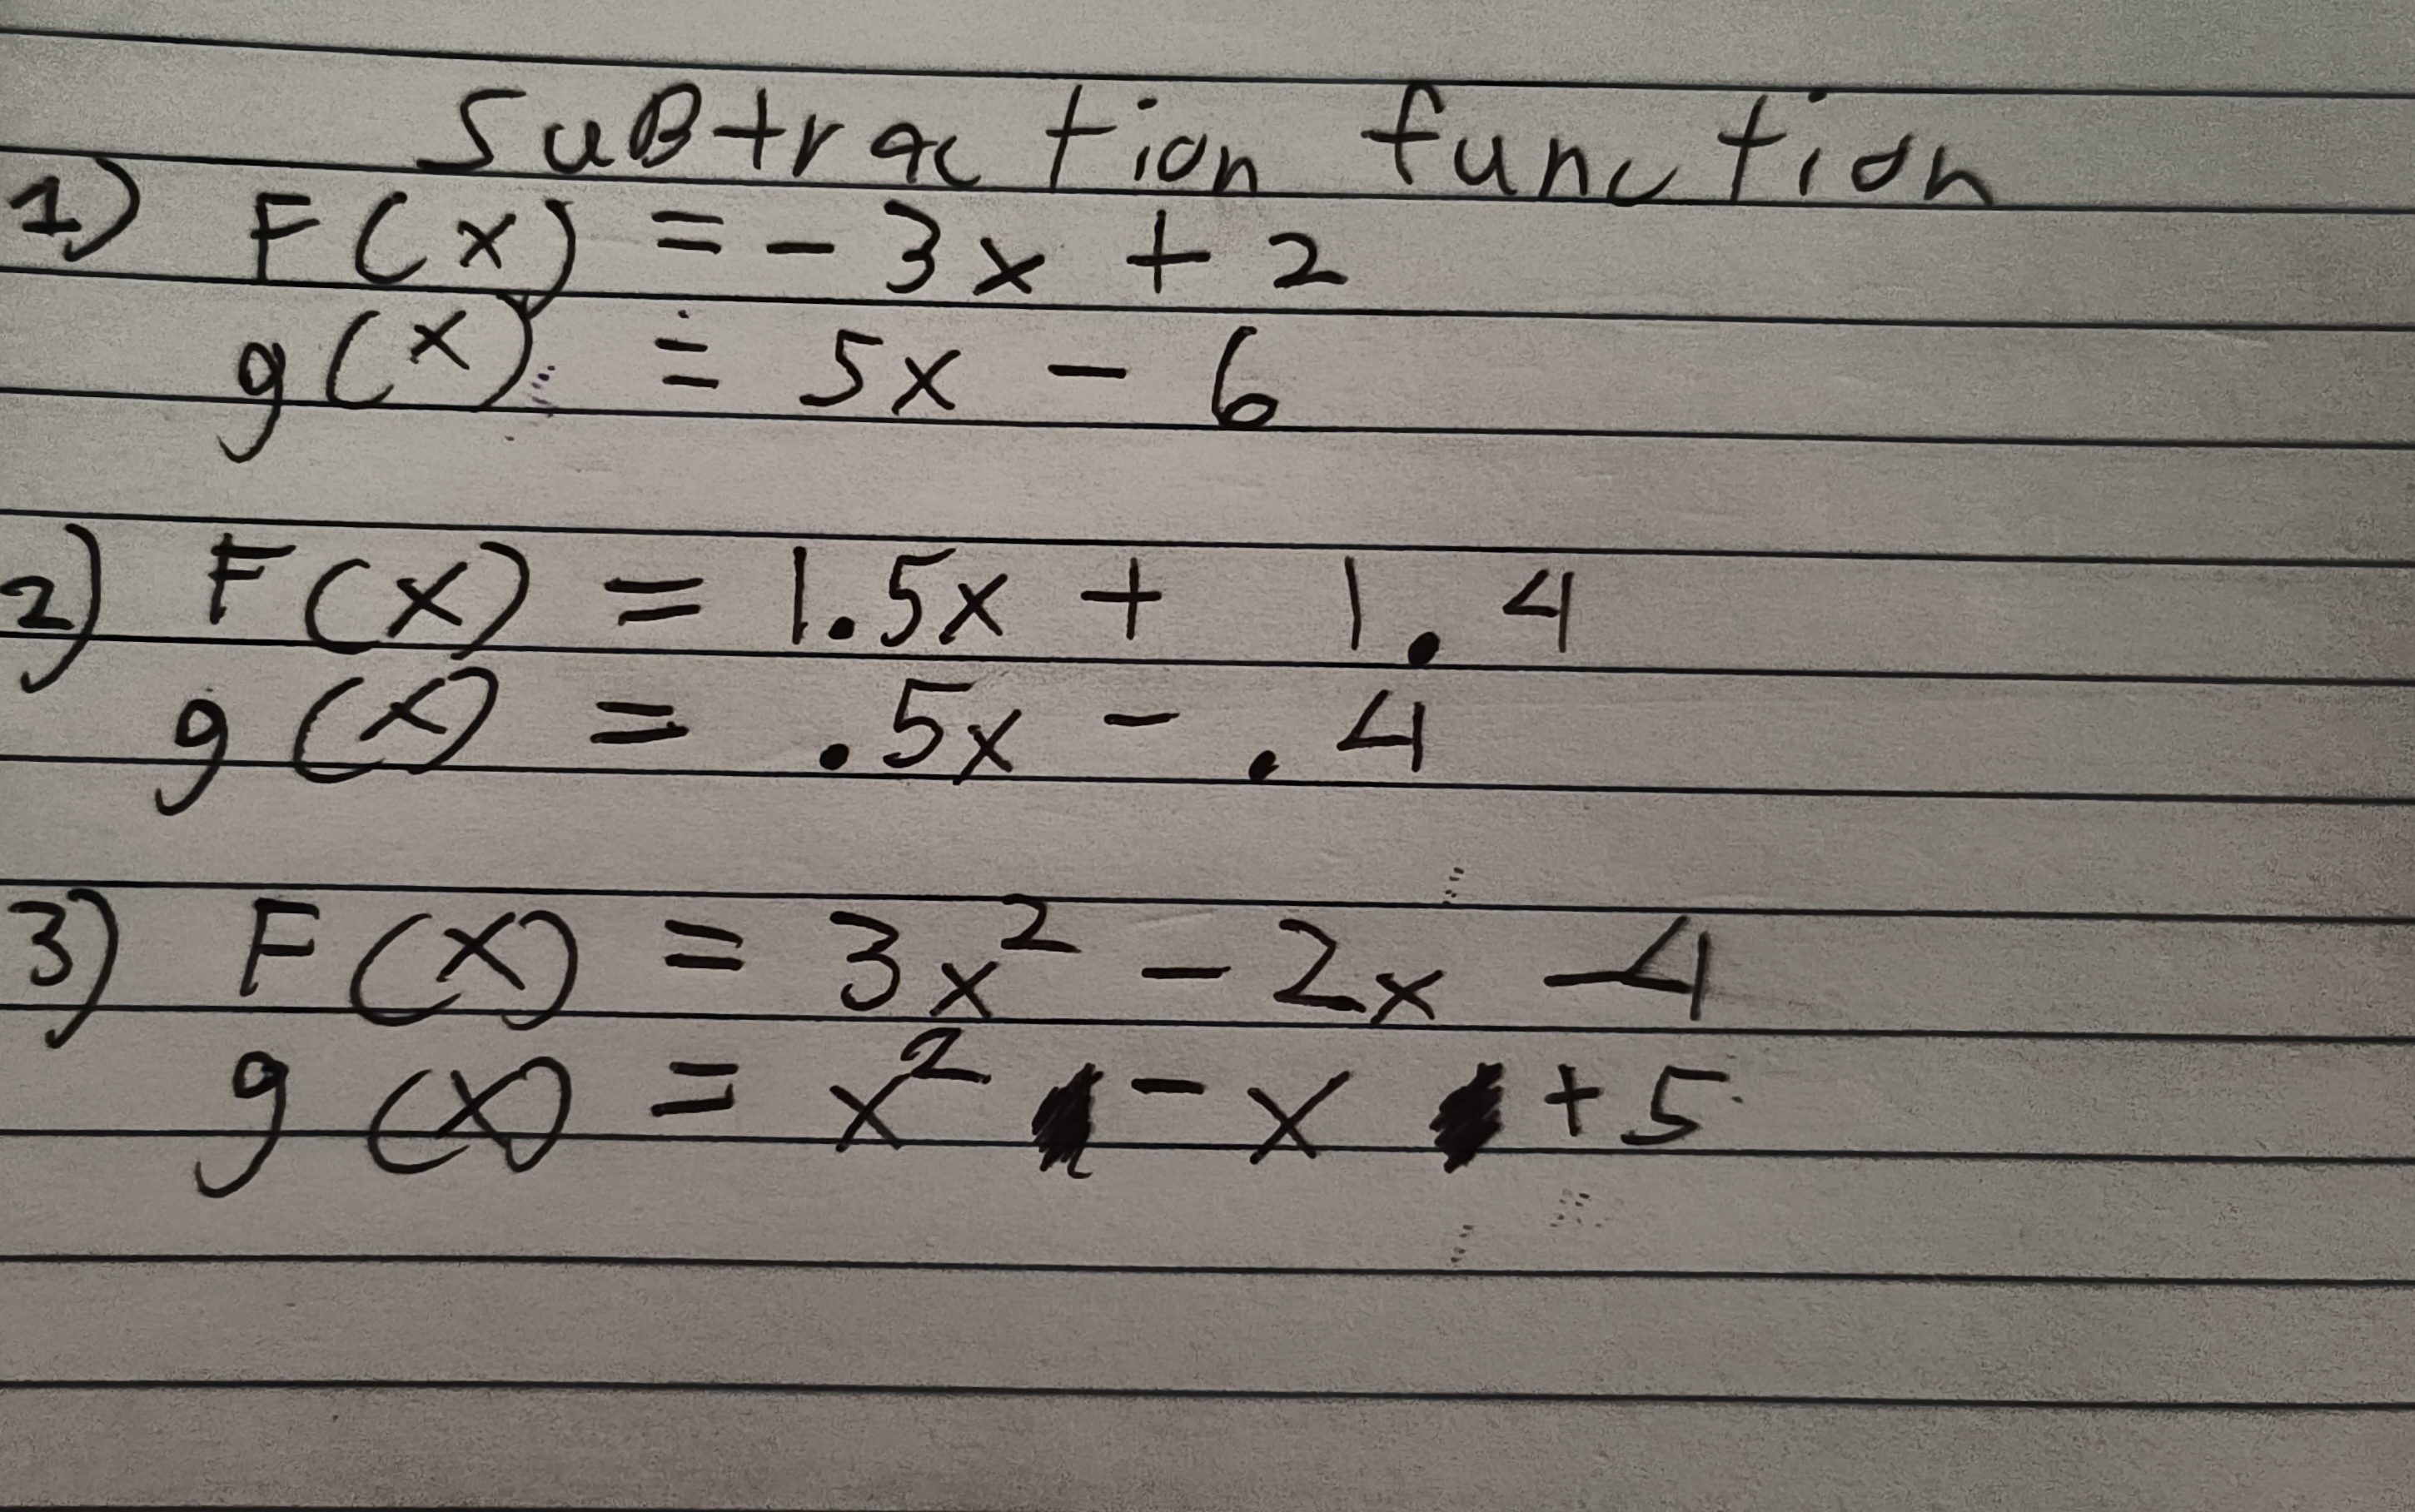 SuBtraction function
1) F(x) = - 3x + 2
g(x) = 5x - 6
2) F(x) = 1.5x + 1.4
g(x) = .5x - .4
3) F(x) = 3x² - 2x - 4
g(x) = x² - x + 5